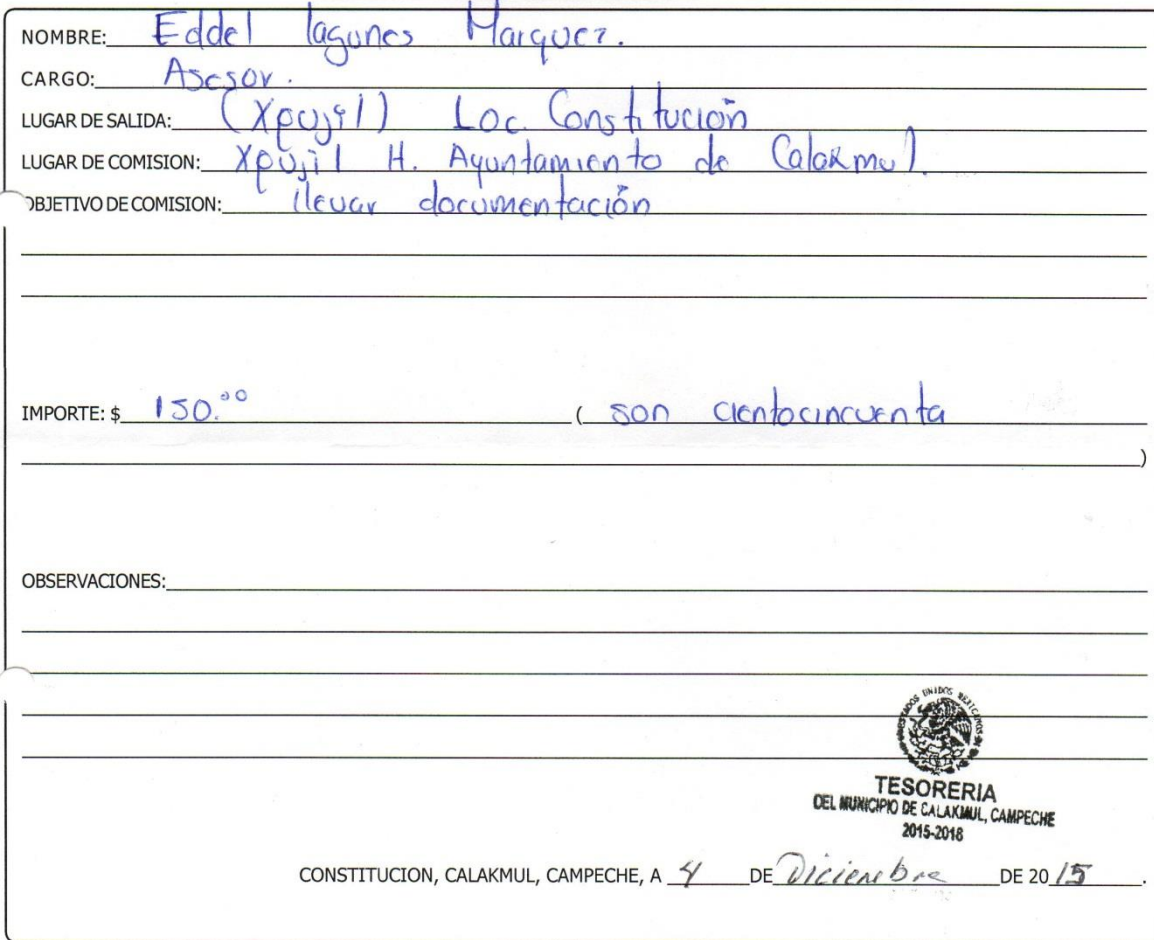 NOMBRE: Eddel lagunes Marquez.
CARGO: Asesor.
LUGAR DE SALIDA: (Xpujil) Loc. Constitución
LUGAR DE COMISION: Xpujil H. Ayuntamiento de Calakmul.
OBJETIVO DE COMISION: llevar documentación
IMPORTE: $ 150.00 ( son cientocincuenta
)
OBSERVACIONES:
ESTADOS UNIDOS MEXICANOS
TESORERIA
DEL MUNICIPIO DE CALAKMUL, CAMPECHE
2015-2018
CONSTITUCION, CALAKMUL, CAMPECHE, A 4 DE Diciembre DE 20 15.